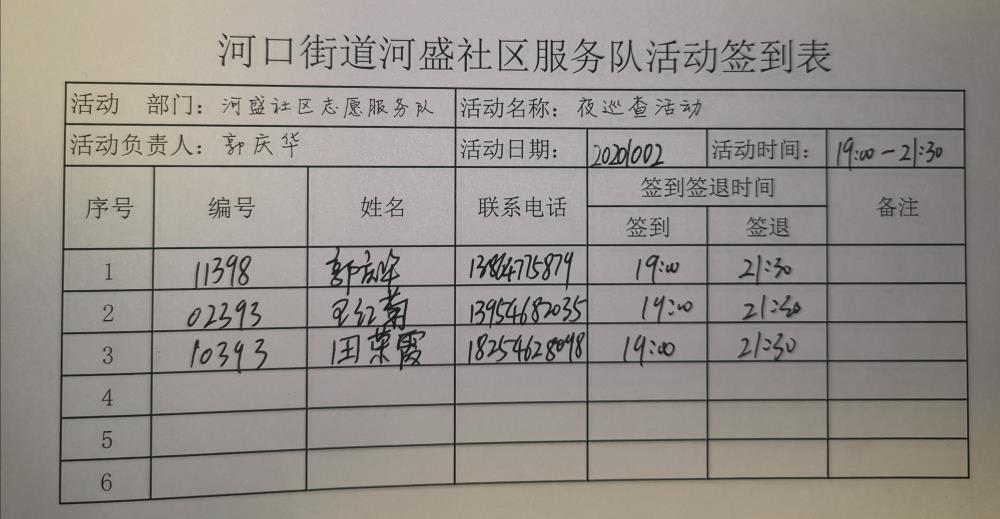 河口街道河盛社区服务队活动签到表
活动 部门：河盛社区志愿服务队 活动名称：夜巡查活动
活动负责人：郭庆华 活动日期：20201002 活动时间：19:00-21:30
序号 编号 姓名 联系电话 签到签退时间 备注
签到 签退
1 11398 郭庆华 13864775879 19:00 21:30
2 02393 王红菊 13954682035 19:00 21:30
3 10393 田荣霞 18254628098 19:00 21:30
4
5
6